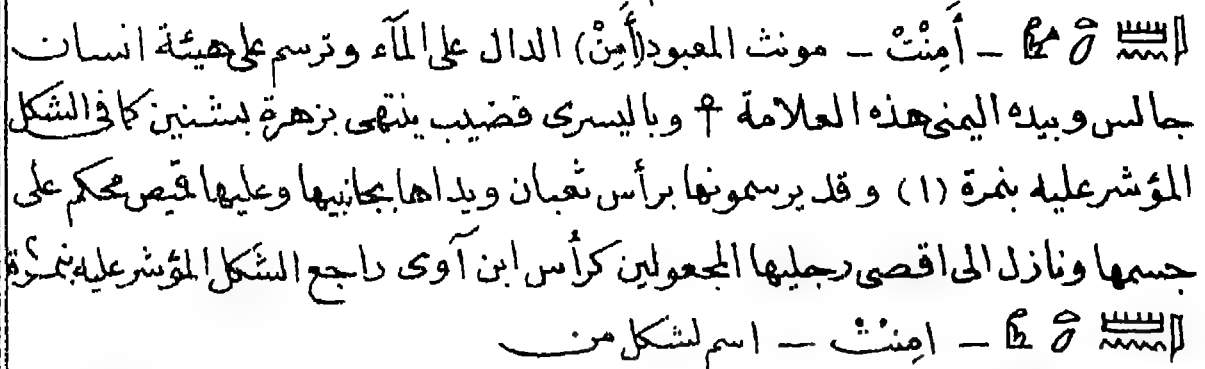 𓇋𓏠𓈖𓏏𓆇𓁐 ـ أَمِنْتْ ـ مونث المعبود (أَمِنْ) الدال على المآء وترسم على هيئة انسان
جالس وبيده اليمنى هذه العلامة ☥ وباليسرى قضيب ينتهى بزهرة بشنين كما فى الشكل
المؤشر عليه بنمرة (١) وقد يرسمونها برأس ثعبان ويداها بجانبيها وعليها قميص محكم على
جسمها ونازل الى اقصى رجليها المجعولين كرأس ابن آوى راجع الشكل المؤشر عليه بنمرة ٢
𓇋𓏠𓈖𓏏𓆇𓁐 ـ امِنتْ ـ اسم لشكل من